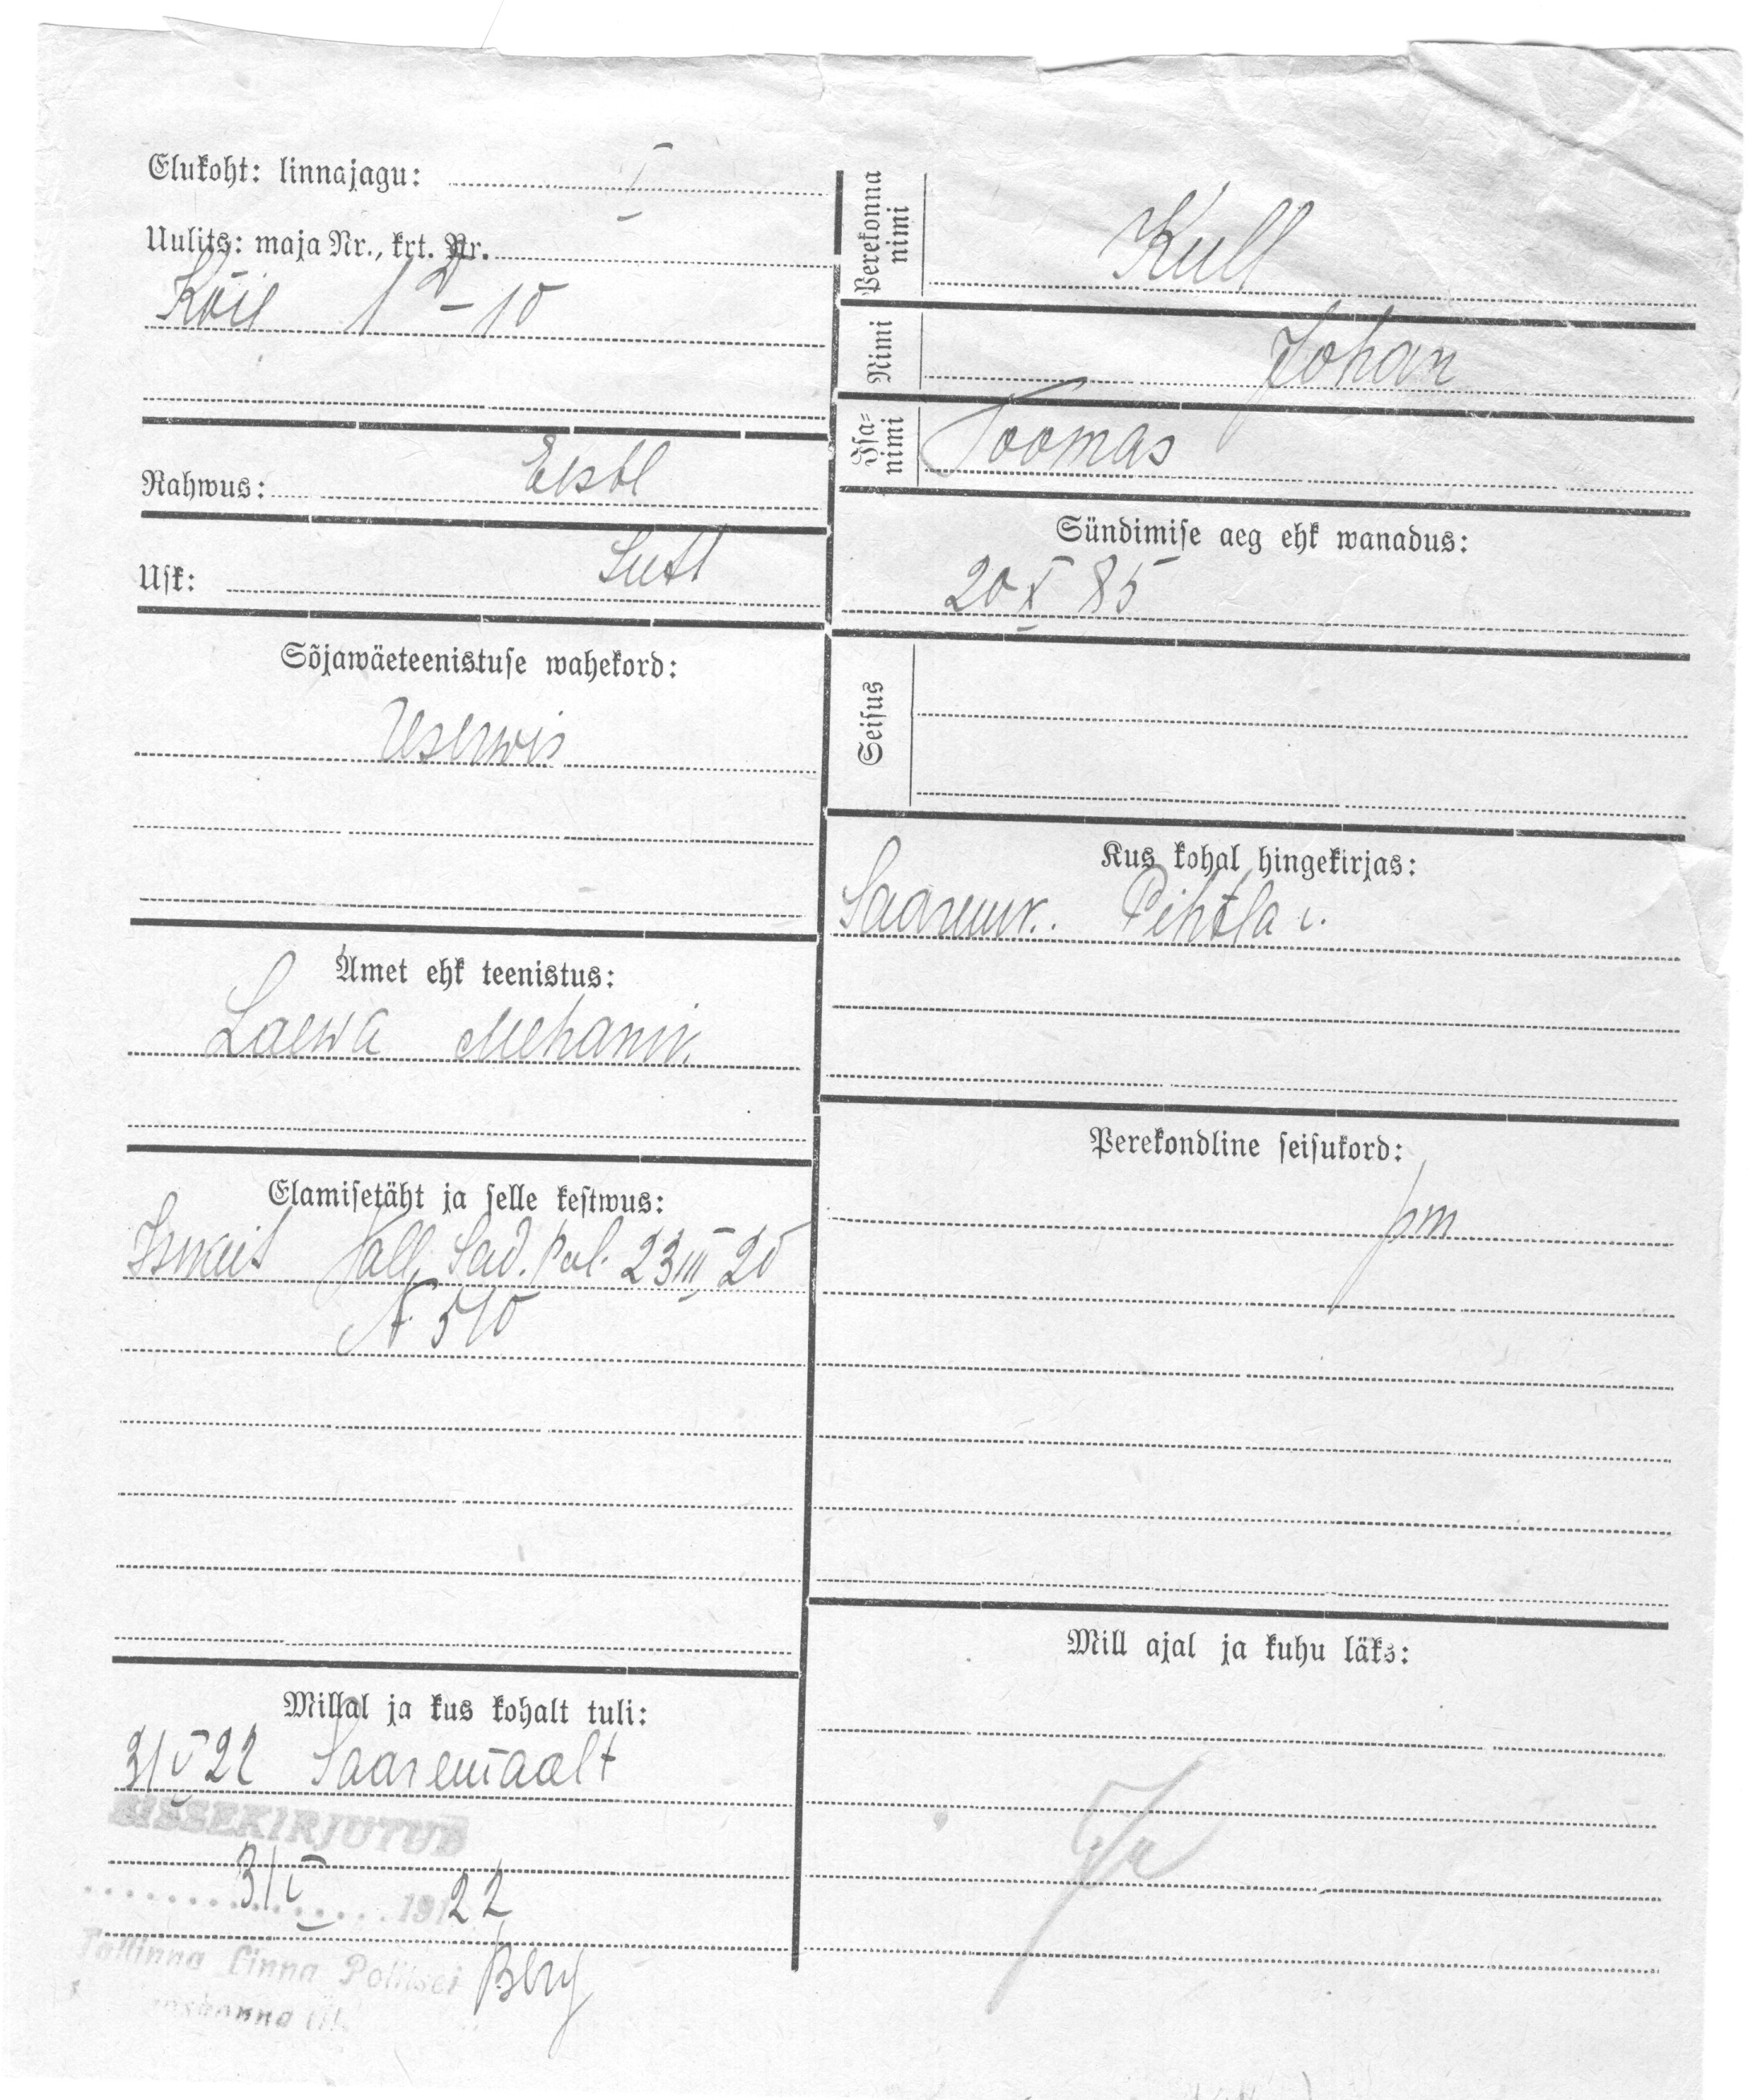 Elukoht: linnajagu: I
Uulits: maja Nr., krt. Nr.
Köie 1a – 10
Rahwus: Eestl
Usk: Lutl
Sõjawäeteenistuse wahekord:
Amet ehk teenistus:
Laewa Mehanik.
Elamisetäht ja selle kestwus:
Isikut Tall. Sad. Pol. 23 III 20
N 510
Millal ja kus kohalt tuli:
31 V 22 Saaremaalt
SISSEKIRJUTUD
31 V 191 22
Tallinna Linna Politsei Berg
Perekonna nimi Kull
Nimi Johan
Isa-nimi Toomas
Sündimise aeg ehk wanadus:
20 X 85
Seisus
Kus kohal hingekirjas:
Saaremr. Pihtla v.
Perekondline seisukord:
Mill ajal ja kuhu läks: